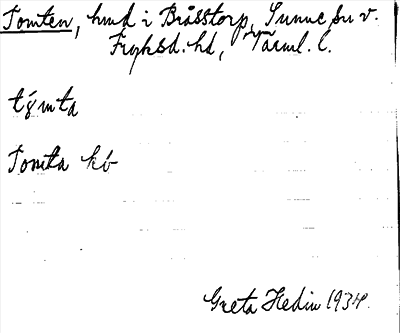 Tomten, hmd i Bråsstorp, Sunne sn v.
Fryksd. hd, Värml. l.
tǿmta
Tomta kö
Greta Hedin 1934.